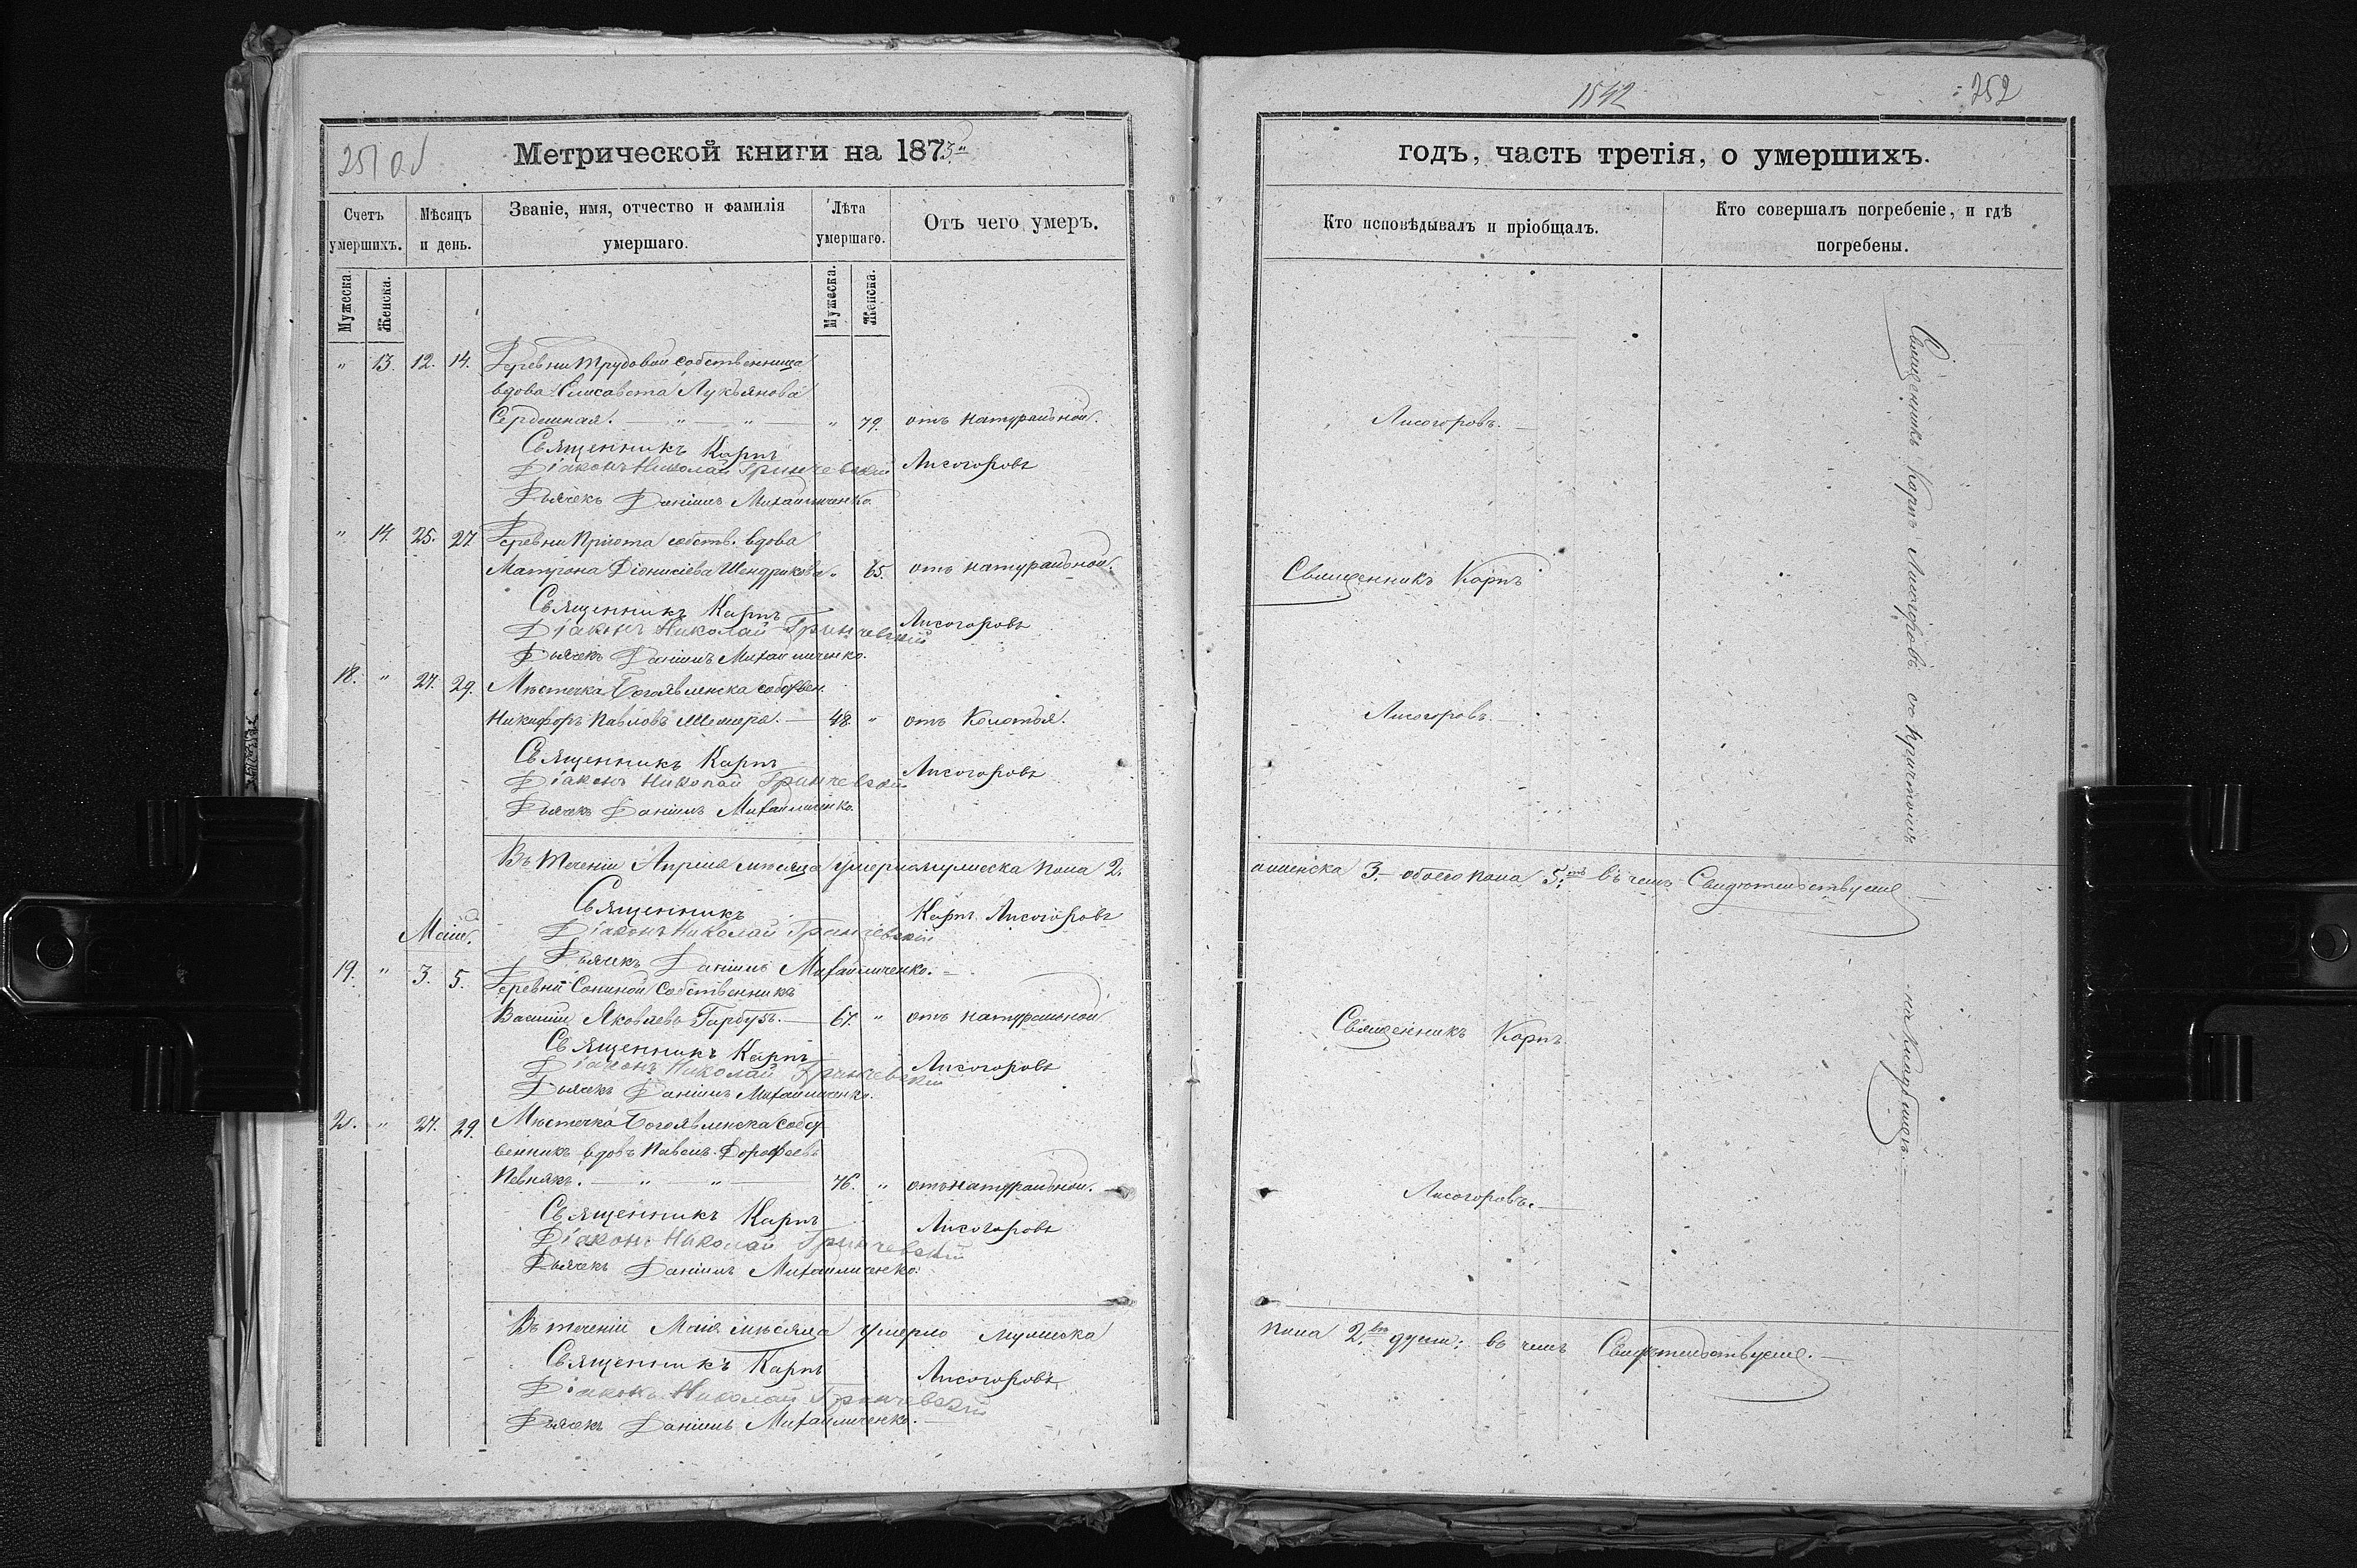 251 об
Метрической книги на 1873й
Счетъ умершихъ.
Мѣсяцъ и день.
Званіе, имя, отчество и фамилія умершаго.
Лѣта умершаго.
Отъ чего умеръ.
Мужеска.
Женска.
Мужеска.
Женска.
" 13. 12. 14. Деревни Трудовой собственница
вдова Елисавета Лукьянова
Сердешная. — " — " — " 79. отъ натуральной.
Священникъ Карпъ Лисогоровъ
Діаконъ Николай Гринчевскій
Дьячекъ Даніилъ Михайличенко.
" 14. 25. 27. Деревни Пріюта собств. вдова
Матрона Діонисіева Шендрикова " 65. отъ натуральной.
Священникъ Карпъ Лисогоровъ
Діаконъ Николай Гринчевскій
Дьячекъ Даніилъ Михайличенко.
18. " 27. 29. Мѣстечка Богоявленска собствен.
Никифоръ Павловъ Шемера. — 48. " отъ Колотья.
Священникъ Карпъ Лисогоровъ
Діаконъ Николай Гринчевскій
Дьячекъ Даніилъ Михайличенко.
Въ теченіи Апрѣля мѣсяца умерло мужеска пола 2.
Священникъ Карпъ Лисогоровъ
Діаконъ Николай Гринчевскій
Дьячекъ Даніилъ Михайличенко.
Маій.
19. " 3. 5. Деревни Сониной собственникъ
Василій Яковлевъ Гарбузъ. — 67. " отъ натуральной
Священникъ Карпъ Лисогоровъ
Діаконъ Николай Гринчевскій
Дьячекъ Даніилъ Михайличенко.
20. " 27. 29. Мѣстечка Богоявленска собст
венникъ вдовъ Павелъ Дорофеевъ
Певнякъ. — " — " — 76. " отъ натуральной.
Священникъ Карпъ Лисогоровъ
Діаконъ Николай Гринчевскій
Дьячекъ Даніилъ Михайличенко.
Въ теченіи Маія мѣсяца умерло мужеска
Священникъ Карпъ Лисогоровъ
Діаконъ Николай Гринчевскій
Дьячекъ Даніилъ Михайличенко.
1542
252
годъ, часть третія, о умершихъ.
Кто исповѣдывалъ и пріобщалъ.
Кто совершалъ погребеніе, и гдѣ погребены.
Лисогоровъ.
Священникъ Карпъ
Лисогоровъ.
а женска 3. обоего пола 5. въ чемъ Свидѣтельствуемъ
Священникъ Карпъ
Лисогоровъ.
пола 2. души; въ чемъ Свидѣтельствуемъ.
Священникъ Карпъ Лисогоровъ съ причтомъ
на кладбищѣ.